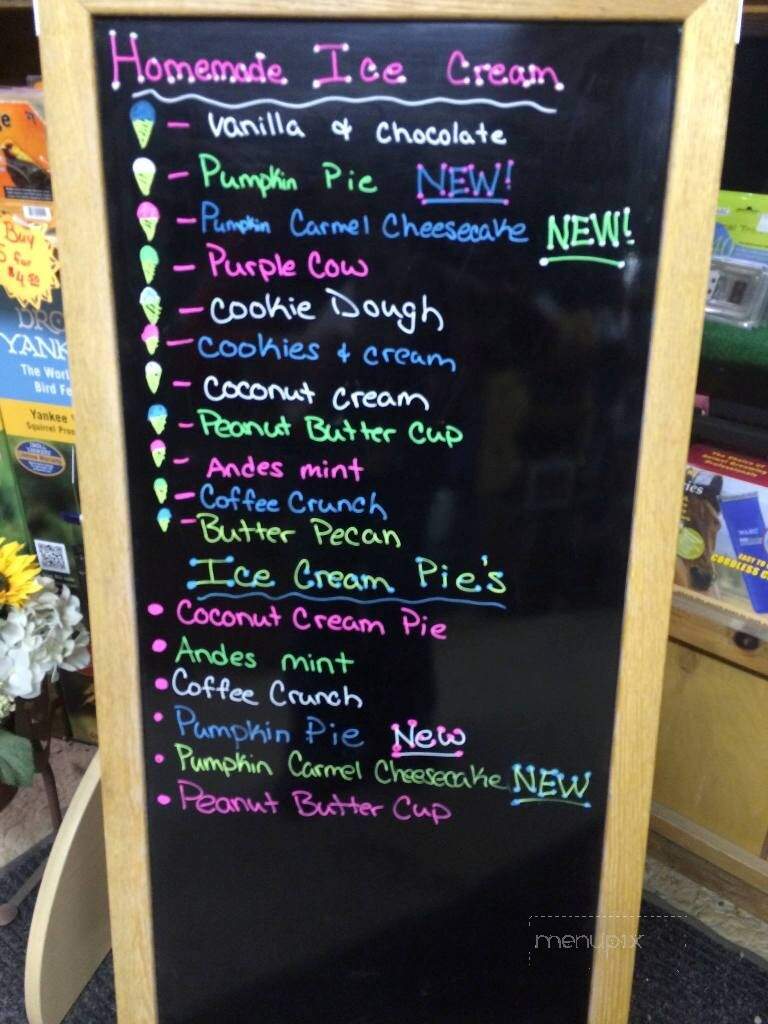 Homemade Ice Cream
- vanilla & chocolate
- Pumpkin Pie NEW!
- Pumpkin Carmel Cheesecake NEW!
- Purple Cow
- Cookie Dough
- Cookies & cream
- Coconut cream
- Peanut Butter Cup
- Andes mint
- Coffee Crunch
- Butter Pecan
Ice Cream Pie's
• Coconut Cream Pie
• Andes mint
• Coffee Crunch
• Pumpkin Pie New
• Pumpkin Carmel Cheesecake NEW
• Peanut Butter Cup
menupix
Buy
for
YANK
The Worl
Bird Fe
Yankee
Squirrel Proo
EASY TO
CORDLESS